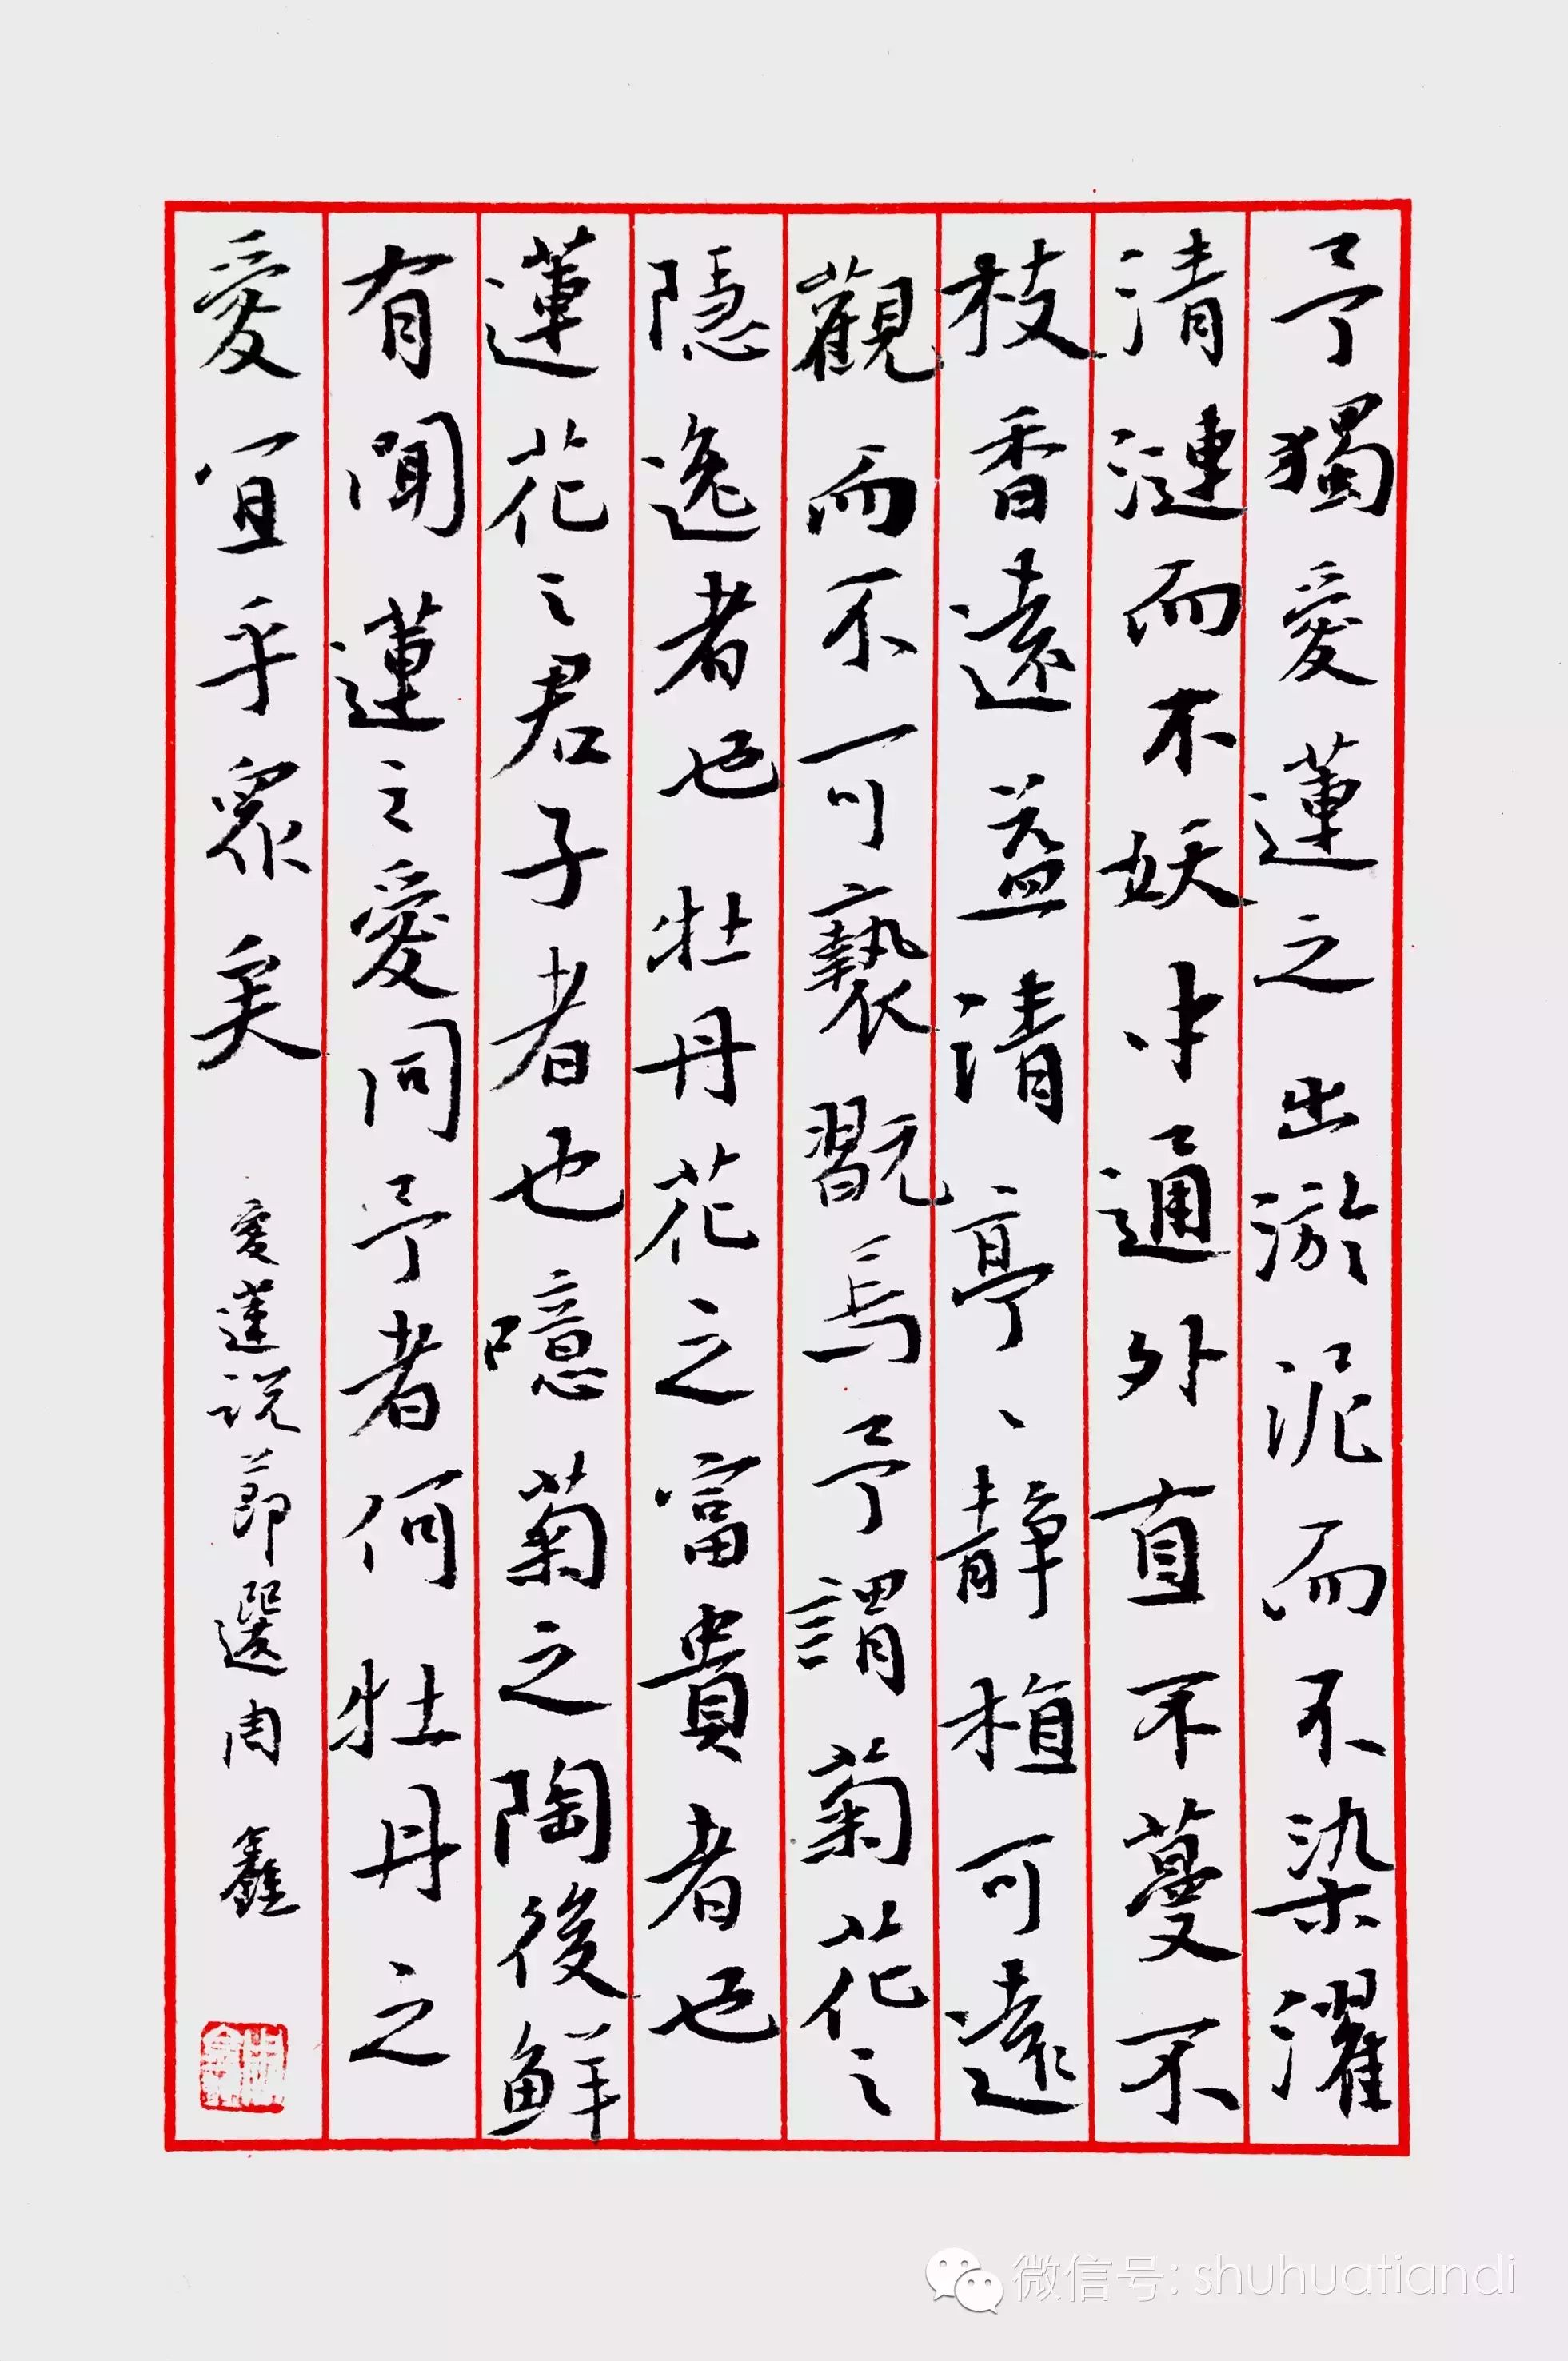 予獨愛蓮之出淤泥而不染濯
清漣而不妖中通外直不蔓不
枝香遠益清亭、静植可遠
觀而不可褻翫焉予謂菊花之
隱逸者也牡丹花之富貴者也
蓮花之君子者也噫菊之陶後鮮
有聞蓮之愛同予者何牡丹之
愛宜乎眾矣
愛蓮説節選周鑫
微信号: shuhuatiandi